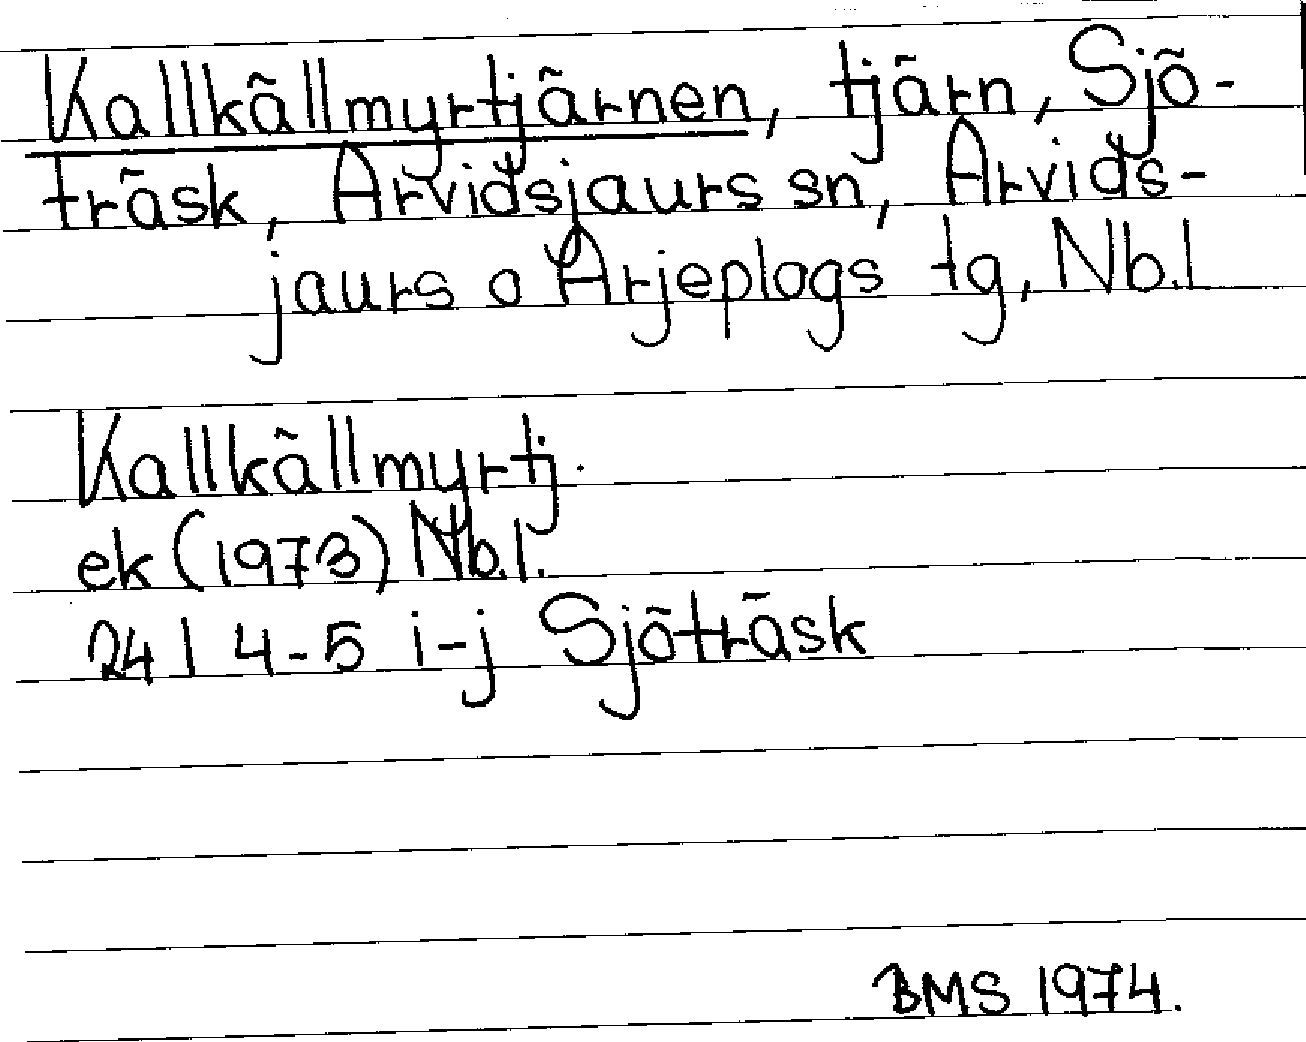 Kallkällmyrtjärnen, tjärn, Sjö-
träsk, Arvidsjaurs sn, Arvids-
jaurs o Arjeplogs tg, Nb.l
Kallkällmyrtj.
ek (1973) Nb.l.
24 I 4-5 i-j Sjöträsk
BMS 1974.